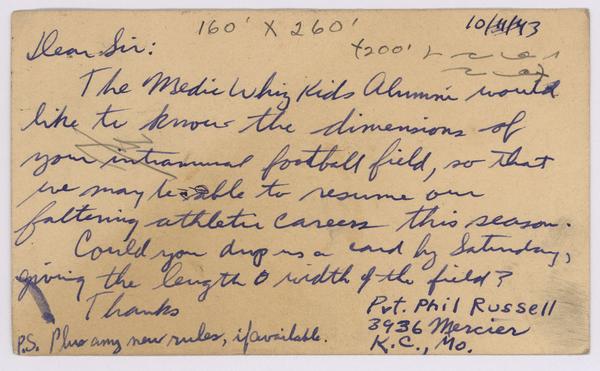 160' X 260'
10/11/43
+200'
Dear Sir:
The Medic Whiz Kids Alumni would
like to know the dimensions of
your intramural football field, so that
we may be able to resume our
faltering athletic careers this season.
Could you drop us a card by Saturday,
giving the length & width of the field?
Thanks
Pvt. Phil Russell
3936 Mercier
K.C., Mo.
P.S. Plus any new rules, if available.